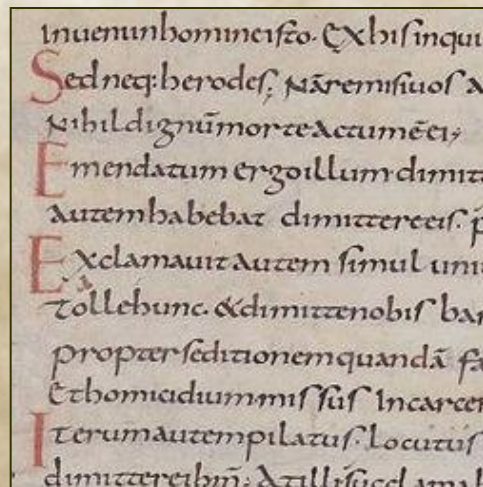 inuenun homine isto. Ex his in qui
Sed neq: herodes; Nā remisi uos a
Nihil dignū morte actum ē ei;
Emendatum ergo illum dimitt
autem habebat dimittere eis. p
Exclamauit autem simul uni
Tolle hunc. & dimitte nobis bar
propter seditionem quandā fa
Et homicidium missus In carcer
Iterum autem pilatus. Locutus
dimittere ihm̄; At illi succlamab